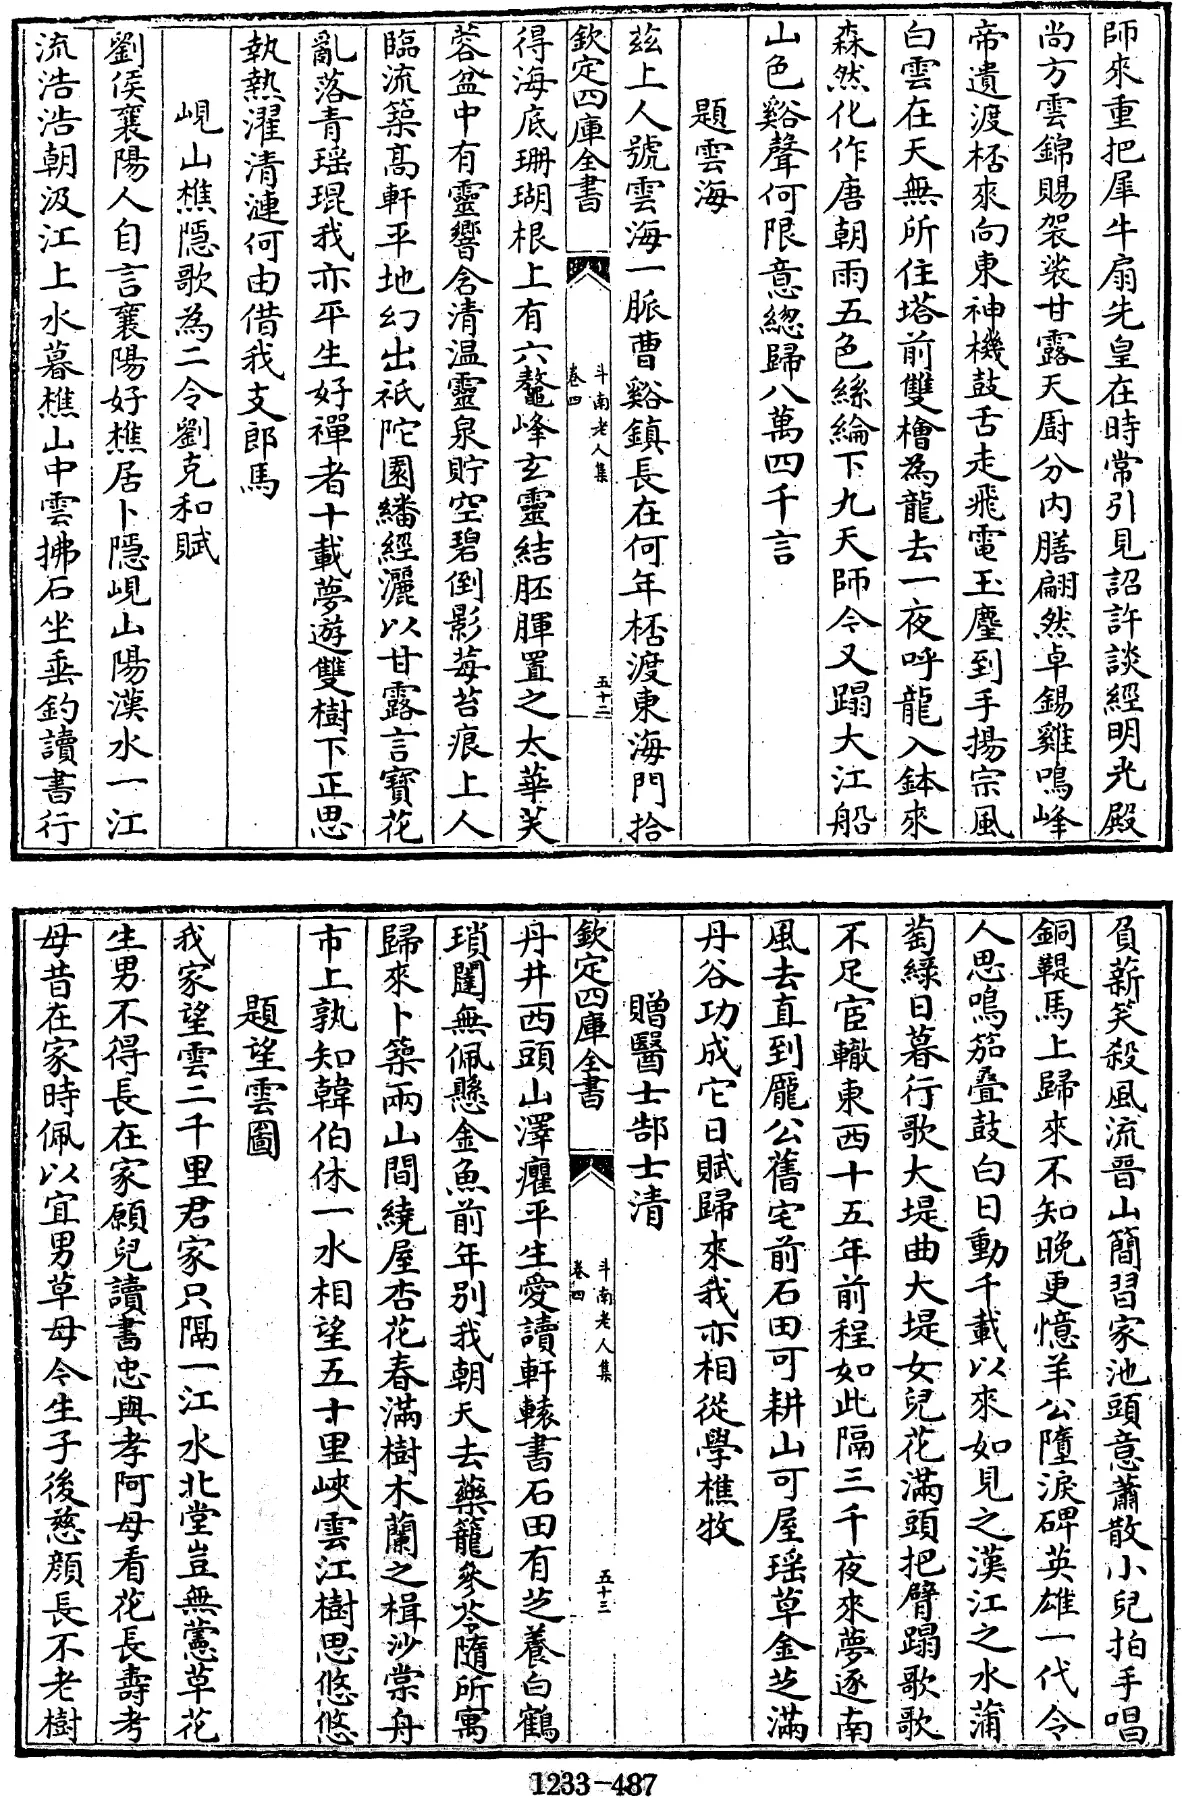 師來重把犀牛扇先皇在時常引見詔許談經明光殿
尚方雲錦賜袈裟甘露天厨分内膳翩然卓錫雞鳴峰
帝遺渡桮來向東神機鼓舌走飛電玉麈到手揚宗風
白雲在天無所住塔前雙檜為龍去一夜呼龍入鉢來
森然化作唐朝雨五色絲綸下九天師令又蹋大江船
山色谿聲何限意緫歸八萬四千言
題雲海
茲上人號雲海一脈曹谿鎮長在何年桮渡東海門拾
欽定四庫全書
斗南老人集
卷四
五十二
得海底珊瑚根上有六鼇峰玄靈結胚腪置之太華芙
蓉盆中有靈響含清温靈泉貯空碧倒影莓苔痕上人
臨流築高軒平地幻出祇陀園繙經灑以甘露言寶花
亂落青瑶琨我亦平生好禪者十載夢遊雙樹下正思
執熱濯清漣何由借我支郎馬
峴山樵隱歌為二令劉克和賦
劉侯襄陽人自言襄陽好樵居卜隱峴山陽漢水一江
流浩浩朝汲江上水暮樵山中雲拂石坐垂釣讀書行
負薪笑殺風流晉山簡習家池頭意蕭散小兒拍手唱
銅鞮馬上歸來不知晚更憶羊公墮淚碑英雄一代令
人思鳴笳疊鼓白日動千載以來如見之漢江之水蒲
萄緑日暮行歌大堤曲大堤女兒花滿頭把臂蹋歌歌
不足宦轍東西十五年前程如此隔三千夜來夢逐南
風去直到龐公舊宅前石田可耕山可屋瑶草金芝滿
丹谷功成它日賦歸來我亦相從學樵牧
贈醫士郜士清
欽定四庫全書
斗南老人集
卷四
五十三
丹井西頭山澤癯平生愛讀軒轅書石田有芝養白鶴
瑣闥無佩懸金魚前年别我朝天去藥籠參苓隨所寓
歸來卜築兩山間繞屋杏花春滿樹木蘭之楫沙棠舟
市上孰知韓伯休一水相望五十里峽雲江樹思悠悠
題望雲圖
我家望雲二千里君家只隔一江水北堂豈無藼草花
生男不得長在家願兒讀書忠與孝阿母看花長壽考
母昔在家時佩以宜男草母令生子後慈顔長不老樹
1233-487